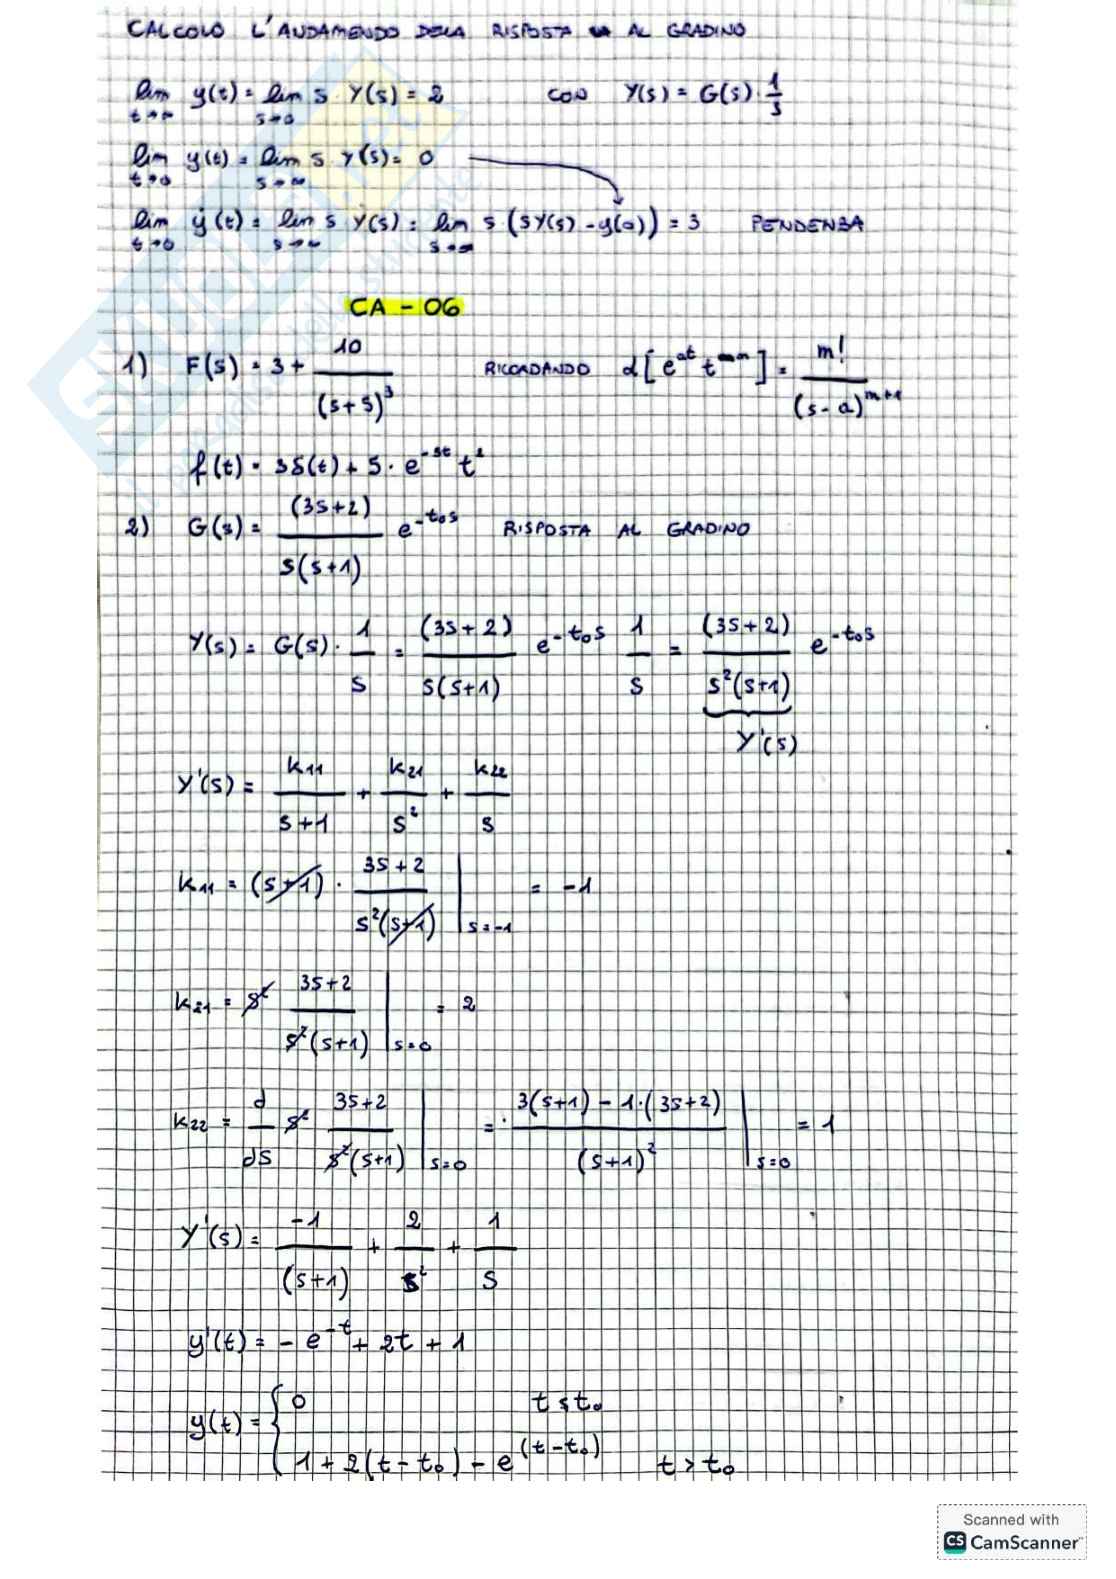 CALCOLO L'AUDAMENDO DELLA RISPOSTA AL GRADINO
lim t→∞ y(t) = lim s→0 s · Y(s) = 2 CON Y(s) = G(s) · 1/s
lim t→0 y(t) = lim s→∞ s · Y(s) = 0
lim t→0 ẏ(t) = lim s→∞ s Ẏ(s) = lim s→∞ s (sY(s) - y(0)) = 3 PENDENZA
CA - 06
1) F(s) = 3 + 10/(s+5)³ RICORDANDO L[e^{at} t^m] = m!/(s-a)^{m+1}
f(t) = 3δ(t) + 5 · e^{-5t} t²
2) G(s) = (3s+2)/s(s+1) e^{-t₀s} RISPOSTA AL GRADINO
Y(s) = G(s) · 1/s = (3s+2)/s(s+1) e^{-t₀s} 1/s = (3s+2)/s²(s+1) e^{-t₀s}
Y'(s)
Y'(s) = k₁₁/s+1 + k₂₁/s² + k₂₂/s
k₁₁ = (s+1) · 3s+2/s²(s+1) |s=-1 = -1
k₂₁ = s² 3s+2/s²(s+1) |s=0 = 2
k₂₂ = d/ds s² 3s+2/s²(s+1) |s=0 = 3(s+1) - 1·(3s+2)/(s+1)² |s=0 = 1
Y'(s) = -1/(s+1) + 2/s² + 1/s
y'(t) = - e^{-t} + 2t + 1
y(t) = { 0 t ≤ t₀
1 + 2(t-t₀) - e^{(t-t₀)} t > t₀
Scanned with
CS CamScanner